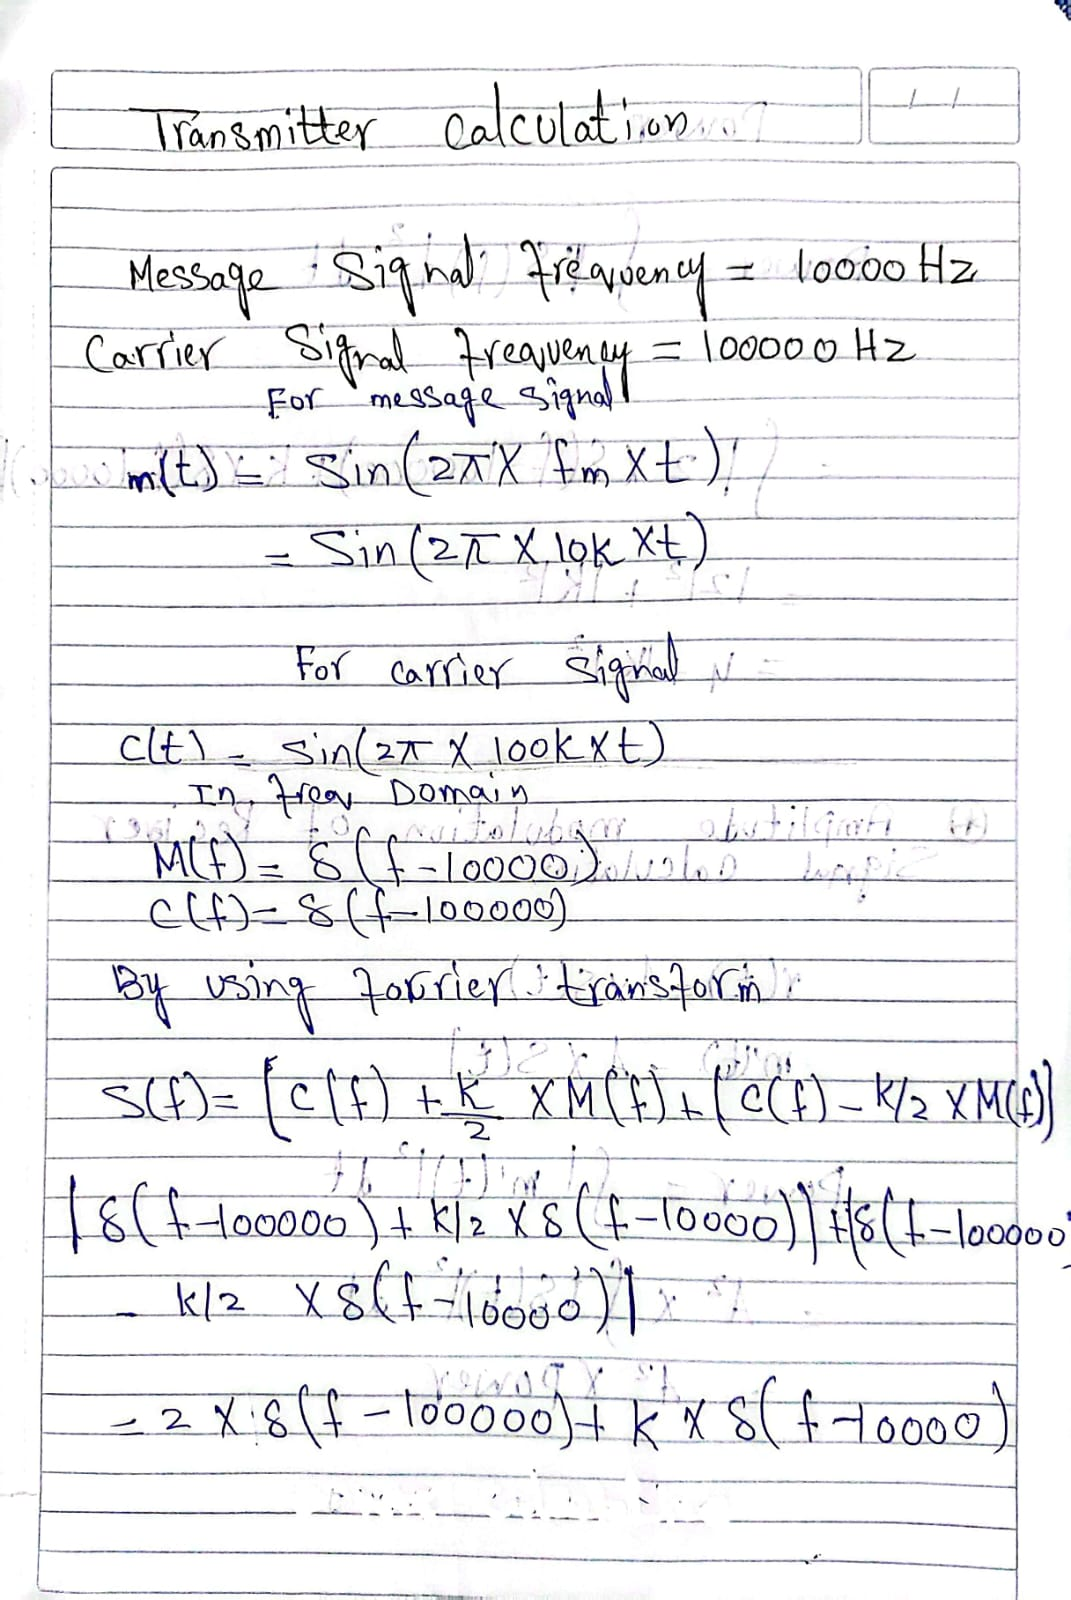 Transmitter Calculation
Message Signal frequency = 10000 Hz
Carrier Signal frequency = 100000 Hz
For message signal
m(t) = Sin(2π X fm X t)
= Sin(2π X 10K X t)
For carrier signal
C(t) = Sin(2π X 100K X t)
In freq Domain
M(f) = δ(f-10000)
C(f) = δ(f-100000)
By using fourrier transform
S(f) = [C(f) + K/2 X M(f) + [C(f) - K/2 X M(f)]
[δ(f-100000) + K/2 X δ(f-10000)] + [δ(f-100000)
- K/2 X δ(f-10000)]
= 2 X δ(f-100000) + K X δ(f-10000)